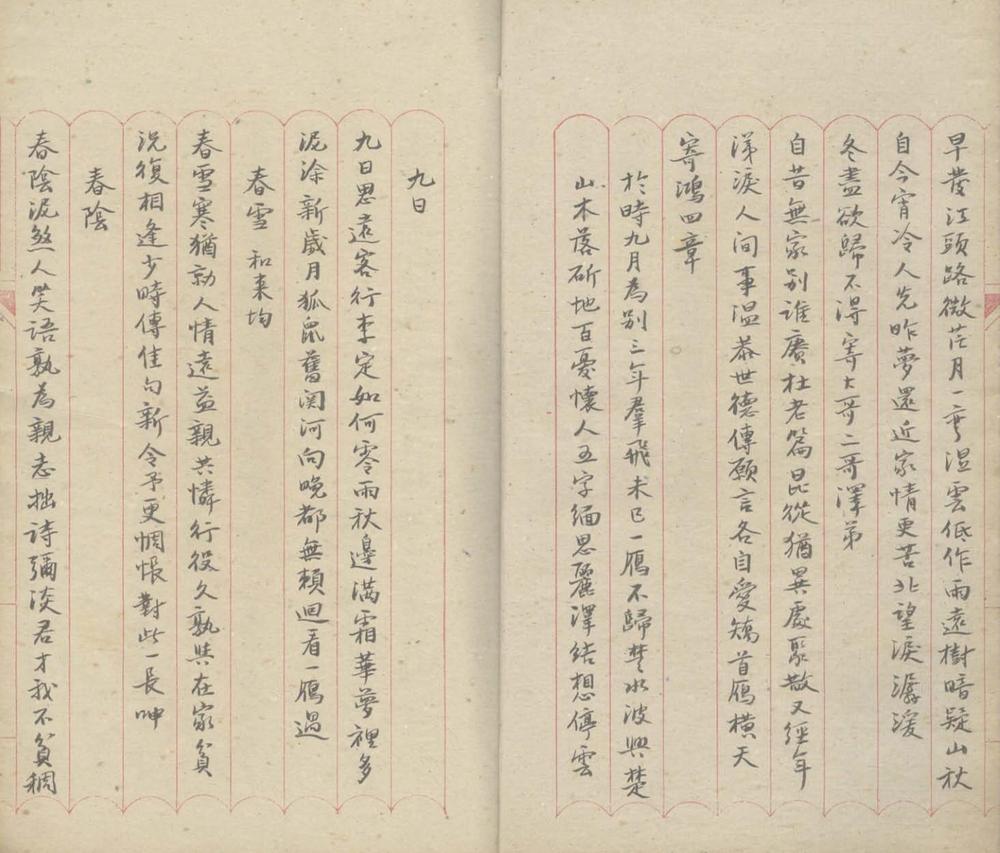 早發江頭路微茫月一彎濕雲低作雨遠樹暗疑山秋
自今宵冷人先昨夢還近家情更苦北望淚潺湲
冬盡欲歸不得寄大哥二哥澤弟
自昔無家別誰賡杜老篇昆從猶異處聚散又經年
涕淚人間事溫恭世德傳願言各自愛矯首雁橫天
寄鴻四章
於時九月為別三年羣飛未已一雁不歸楚水波興楚
山木落斫地百憂懷人五字緬思麗澤結想停雲
九日
九日思遠客行李定如何零雨秋邊滿霜華夢裡多
泥涂新歲月狐鼠舊関河向晚都無賴迴看一雁過
春雪 和来均
春雪寒猶勁人情遠益親共憐行役久孰與在家貧
况復相逢少時傳佳句新令予更惆悵對此一長呻
春陰
春陰泥煞人笑語孰為親志拙詩彌淡君才我不貧稠